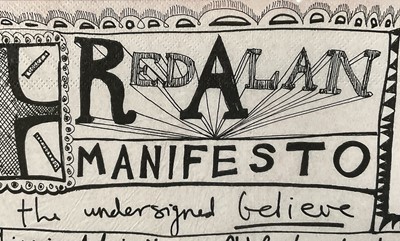 REDALAN
MANIFESTO
the undersigned believe